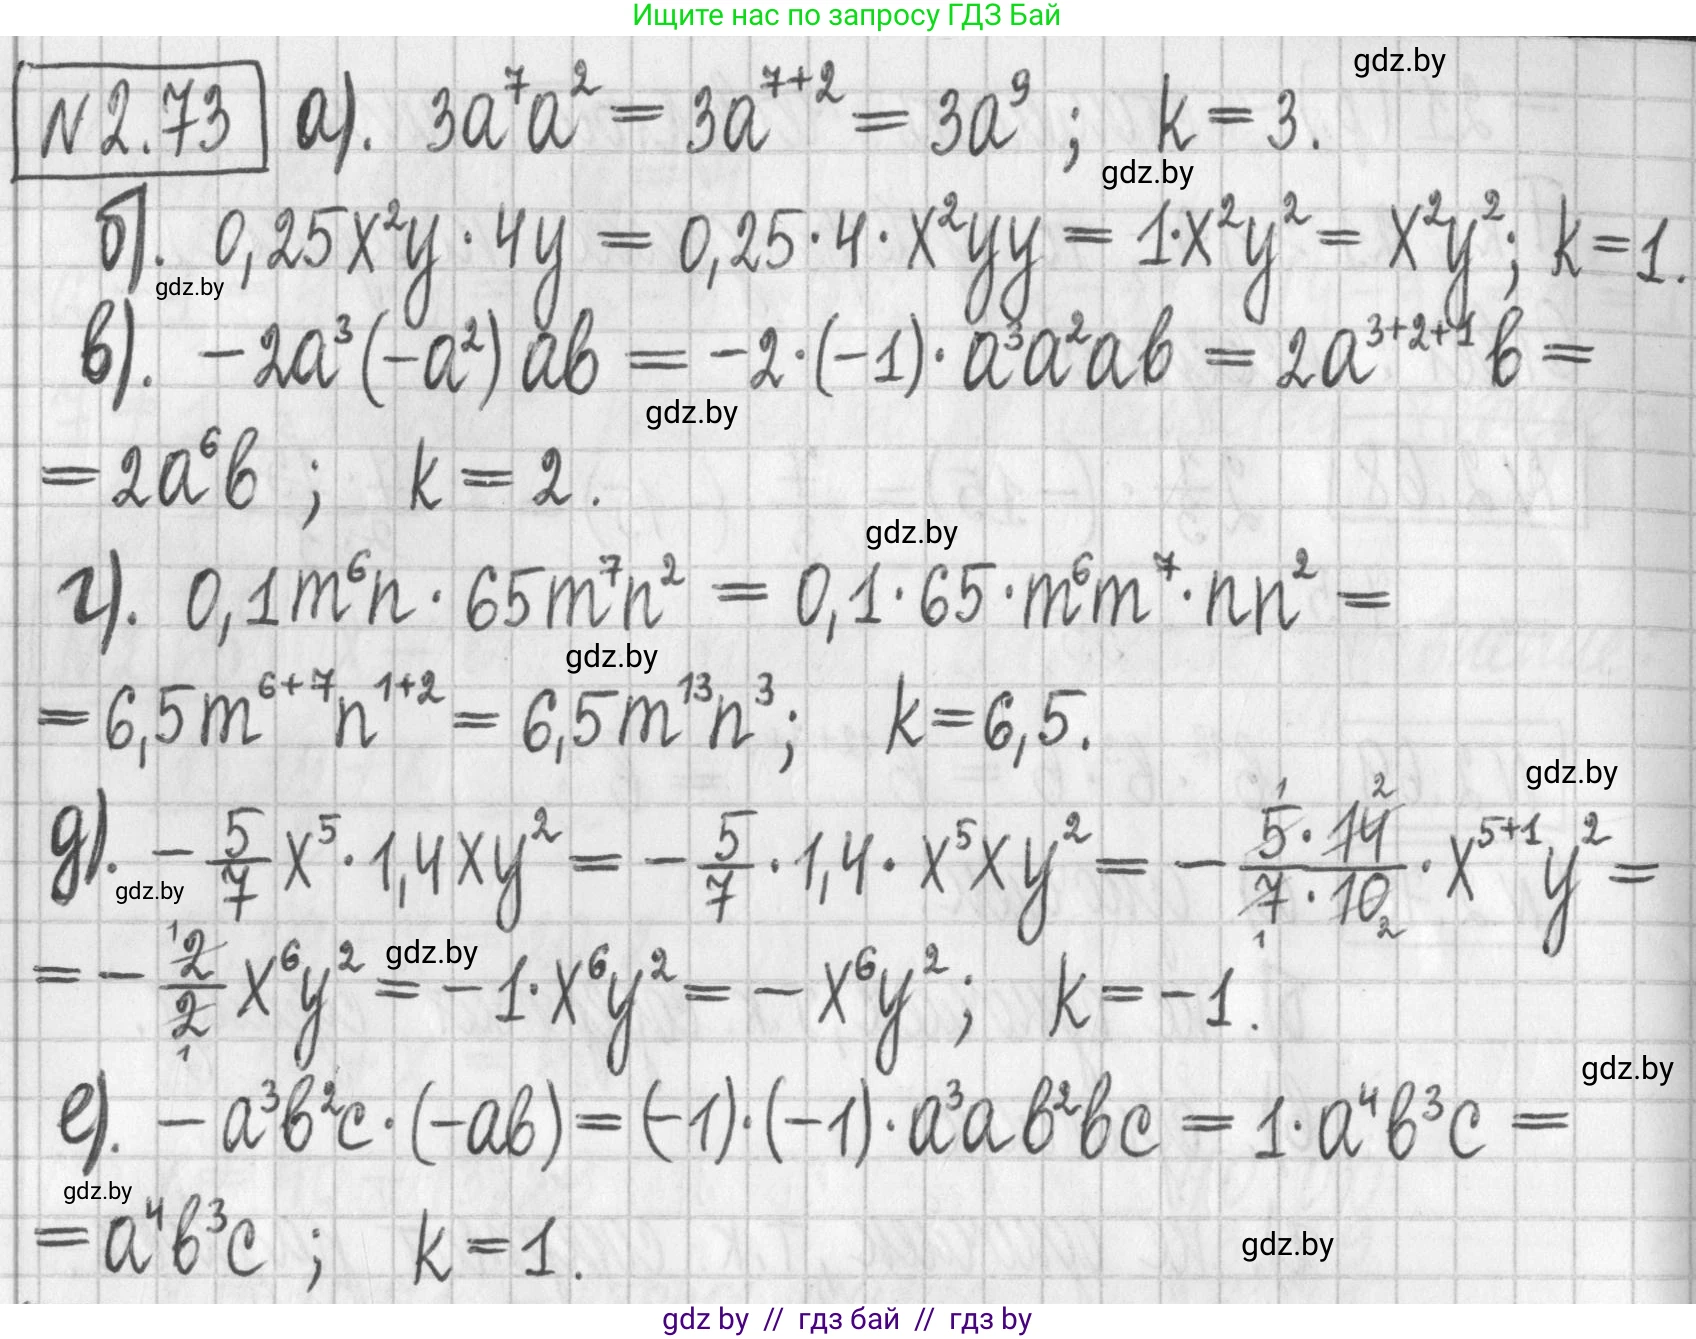 Ищите нас по запросу ГДЗ Бай
gdz.by
N2.73 а). 3a⁷a² = 3a⁷⁺² = 3a⁹ ; k = 3.
gdz.by
б). 0,25x²y · 4y = 0,25 · 4 · x²yy = 1·x²y² = x²y²; k=1.
gdz.by
в). -2a³(-a²)ab = -2·(-1)·a³a²ab = 2a³⁺²⁺¹b =
gdz.by
= 2a⁶b ; k = 2.
gdz.by
г). 0,1m⁶n · 65m⁷n² = 0,1·65·m⁶m⁷·nn² =
gdz.by
= 6,5m⁶⁺⁷n¹⁺² = 6,5m¹³n³; k=6,5.
gdz.by
д). -5/7 x⁵·1,4xy² = -5/7 ·1,4· x⁵xy² = - 5¹·14²/7₁·10₂ · x⁵⁺¹y² =
gdz.by
= - 2¹/2₁ x⁶y² = -1·x⁶y² = -x⁶y²; k=-1.
gdz.by
gdz.by
е). -a³b²c·(-ab)=(-1)·(-1)·a³ab²bc = 1·a⁴b³c =
gdz.by
= a⁴b³c ; k=1.
gdz.by
gdz by // гдз бай // гдз by